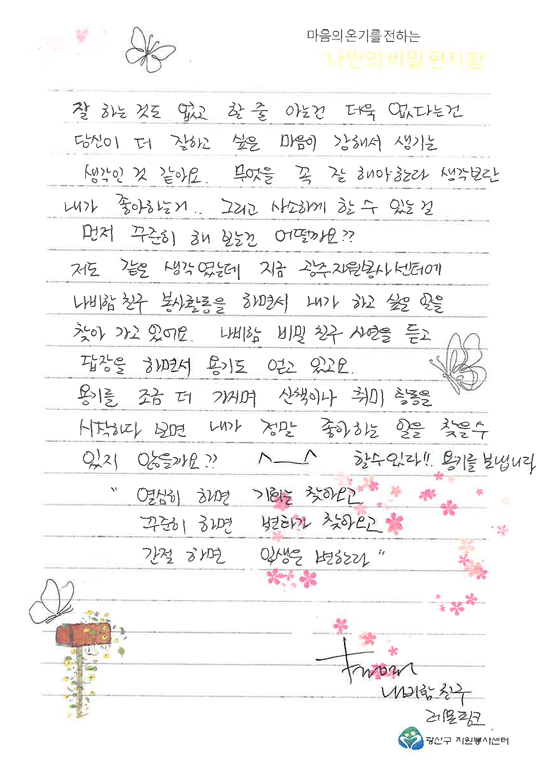 마음의 온기를 전하는
"나만의 비밀 편지함"
잘 하는 것도 없고 할 줄 아는건 더욱 없다는건
당신이 더 잘하고 싶은 마음이 강해서 생기는
생각인 것 같아요. 무엇을 꼭 잘 해야한다 생각보단
내가 좋아하는거.. 그리고 사소하게 할 수 있는 걸
먼저 꾸준히 해 보는건 어떨까요??
저도 같은 생각였는데 지금 광주자원봉사센터에
나비함 친구 봉사활동을 하면서 내가 하고 싶은 일을
찾아 가고 있어요. 나비함 비밀 친구 사연을 듣고
답장을 하면서 용기도 얻고 있고요.
용기를 조금 더 가지며 산책이나 취미 활동을
시작하다 보면 내가 정말 좋아하는 일을 찾을수
있지 않을까요?? ^__^ 할수있다!!. 용기를 보냅니다
" 열심히 하면 기회는 찾아오고
꾸준히 하면 변화가 찾아오고
간절 하면 인생은 변한다 "
나비함 친구
레몬핑크
광산구 자원봉사센터